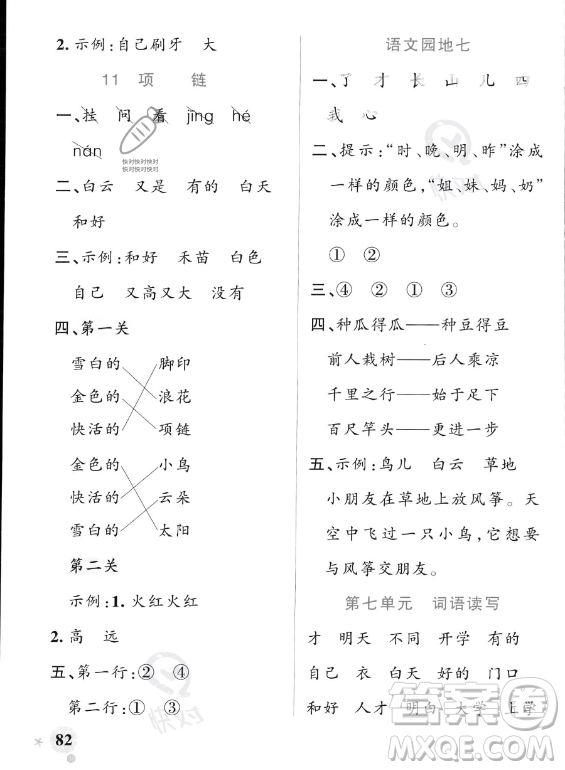 2. 示例:自己刷牙 大
11 项 链
一、挂 问 看 jìng hé
nán
快对快对快对
快对快对快对
二、白云 又是 有的 白天
和好
三、示例:和好 禾苗 白色
自己 又高又大 没有
四、第一关
雪白的 脚印
金色的 浪花
快活的 项链
金色的 小鸟
快活的 云朵
雪白的 太阳
第二关
示例:1. 火红火红
2. 高 远
五、第一行:② ④
第二行:① ③
快对
82
语文园地七
一、了 才 长 山 儿 四
我 心
二、提示:“时、晚、明、昨”涂成
一样的颜色,“姐、妹、妈、奶”
涂成一样的颜色。
① ②
三、④ ② ① ③
四、种瓜得瓜——种豆得豆
前人栽树——后人乘凉
千里之行——始于足下
百尺竿头——更进一步
五、示例:鸟儿 白云 草地
小朋友在草地上放风筝。天
空中飞过一只小鸟,它想要
与风筝交朋友。
第七单元 词语读写
才 明天 不同 开学 有的
自己 衣 白天 好的 门口
和好 人才 明白 大学 上学
答案圈
MXQE.COM